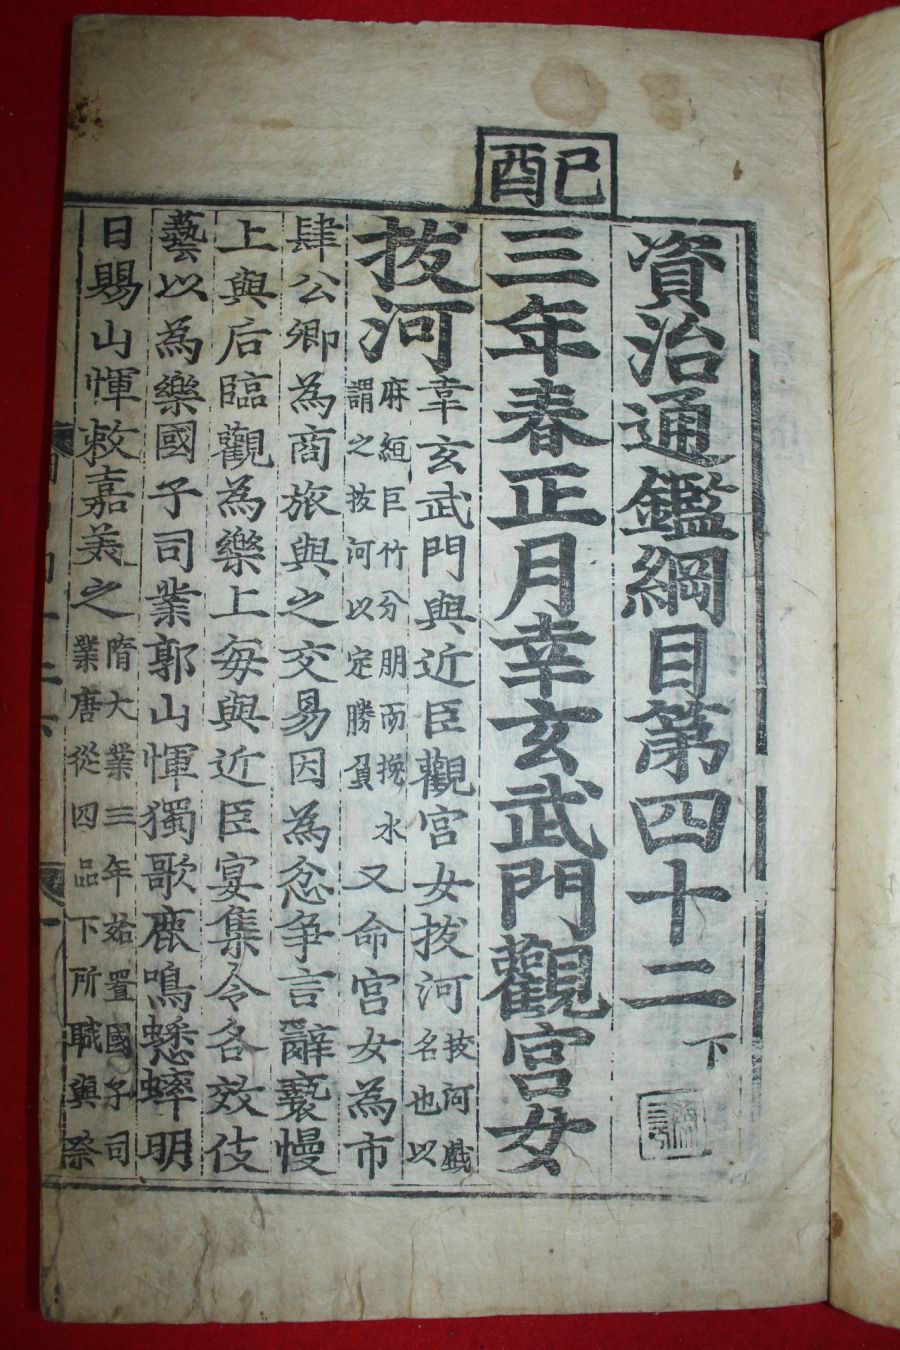 己酉
資治通鑑綱目第四十二下
三年春正月幸玄武門觀宮女
拔河
幸玄武門與近臣觀宮女拔河
拔河戲
名也以
麻絙巨竹分朋而挽水
謂之拔河以定勝負
又命宮女為市
肆公卿為商旅與之交易因為忿爭言辭褻慢
上與后臨觀為樂上每與近臣宴集令各效伎
藝以為樂國子司業郭山惲獨歌鹿鳴蟋蟀明
日賜山惲敕嘉美之
隋大業三年始置國子司
業唐從四品下所職與祭